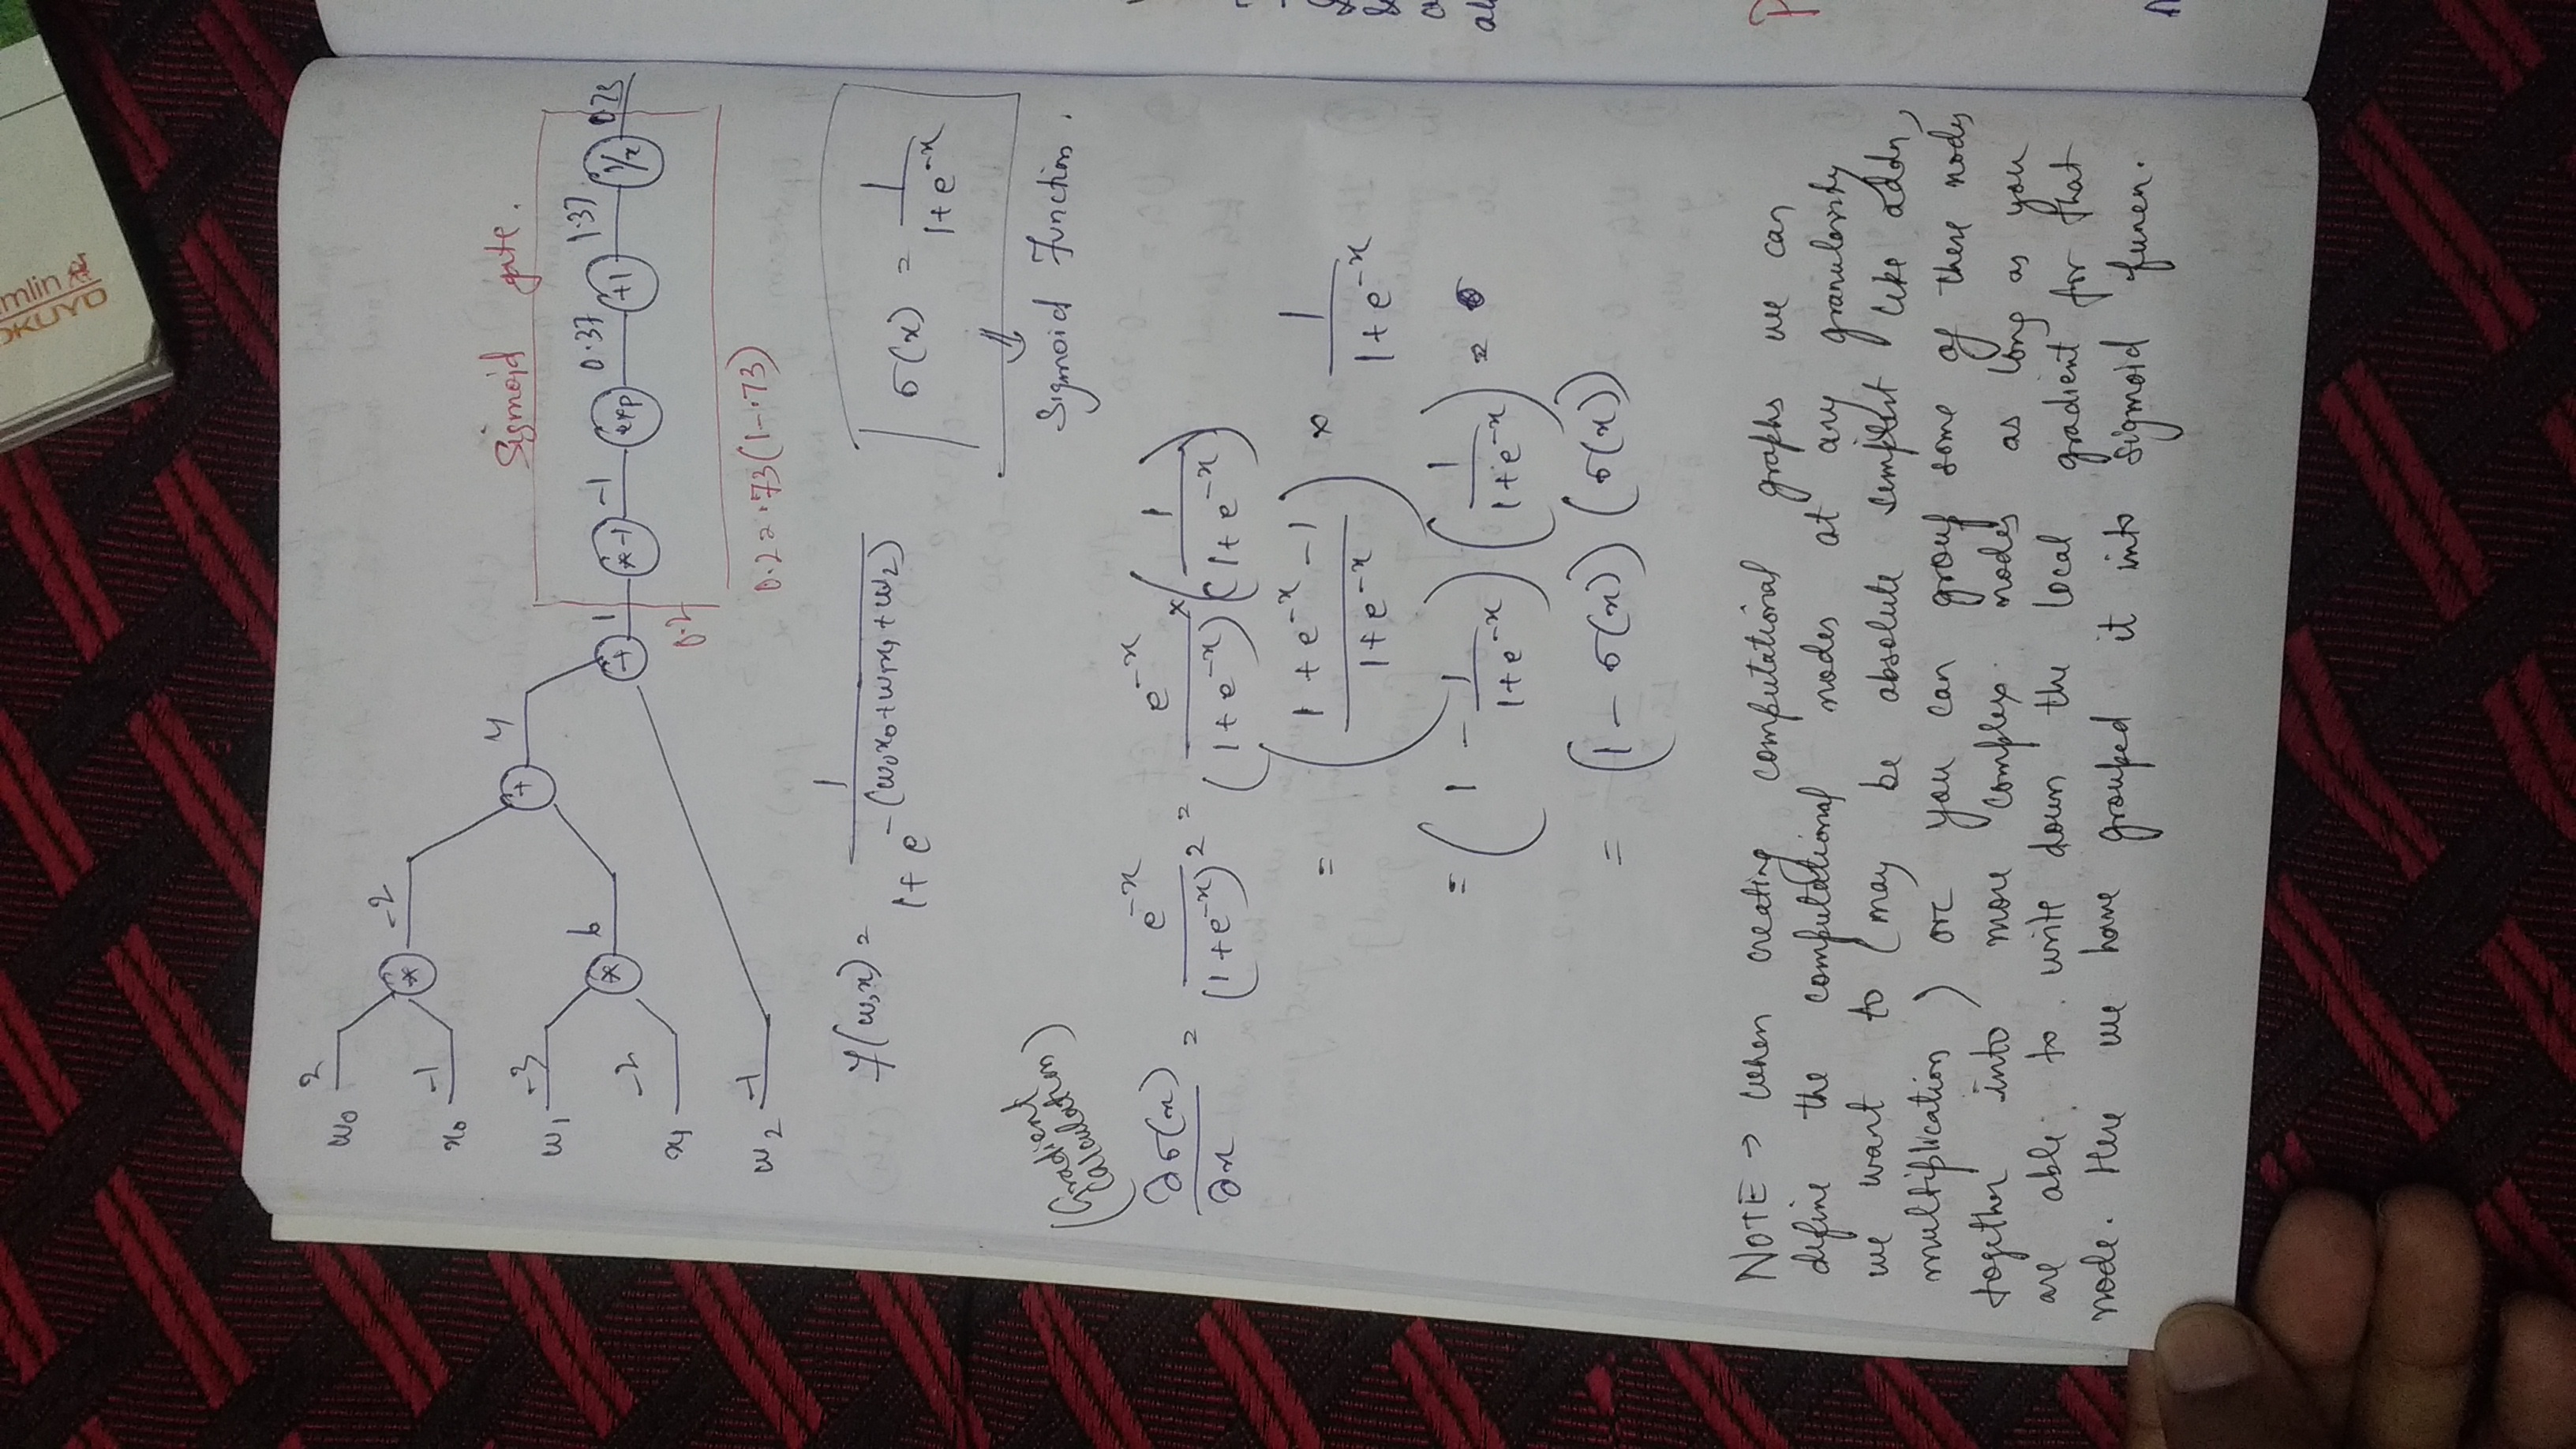 mlin
OKUYO
w0 2
* -2
x0 -1
+ 4
w1 -3
* 6
x1 -2
w2 -1
Sigmoid gate.
+ 1 *-1 -1 exp 0.37 +1 1.37 1/x 0.73
0.2
0.2 = .73(1-.73)
f(w,x) = 1 / (1+e^-(w0x0+w1x1+w2))
σ(x) = 1 / (1+e^-x)
⇓
Sigmoid Function.
(Gradient
Calculation)
∂σ(x)/∂x = e^-x / (1+e^-x)^2 = e^-x / (1+e^-x) × (1 / (1+e^-x))
= ((1+e^-x-1) / (1+e^-x)) × 1 / (1+e^-x)
= (1 - 1/(1+e^-x)) (1/(1+e^-x)) =
= (1-σ(x)) (σ(x))
NOTE → When creating computational graphs we can
define the computational nodes at any granularity
we want to (may be absolute simplest like addn,
multiplication) or you can group some of these nodes
together into more complex nodes as long as you
are able to write down the local gradient for that
node. Here we have grouped it into sigmoid funcn.